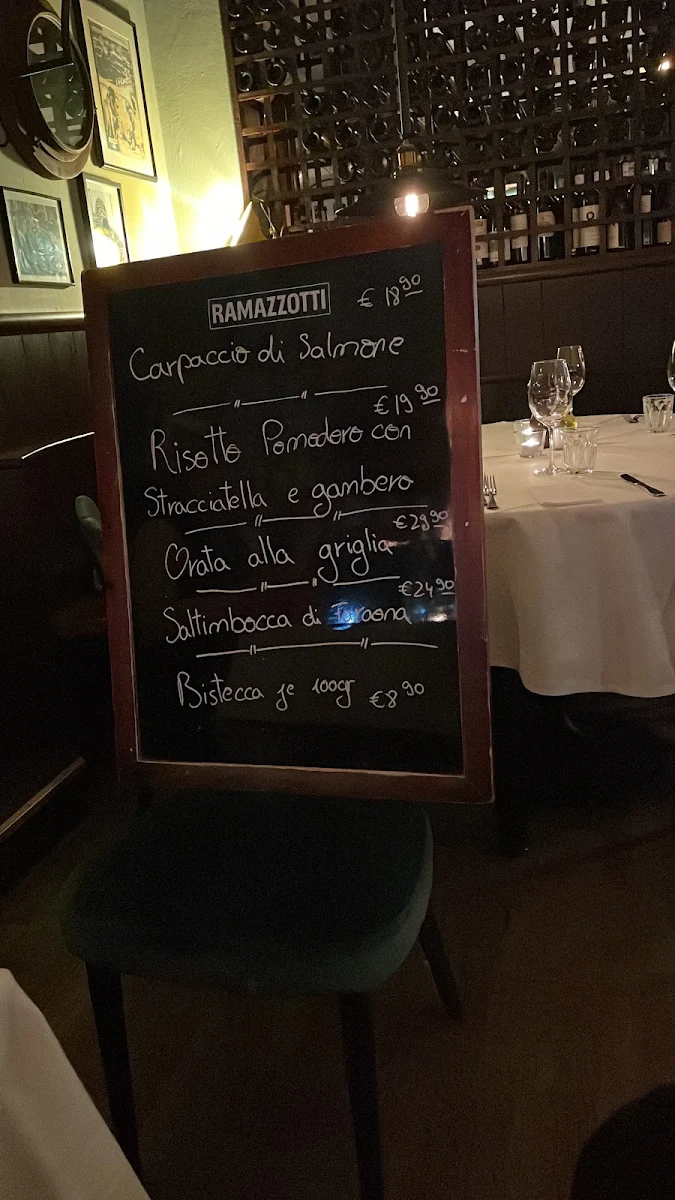 RAMAZZOTTI € 18⁹⁰
Carpaccio di Salmone
€ 19⁹⁰
Risotto Pomodoro con
Stracciatella e gambero
€ 29⁹⁰
Orata alla griglia
€ 24⁹⁰
Saltimbocca di Faraona
Bistecca je 100gr € 8⁹⁰